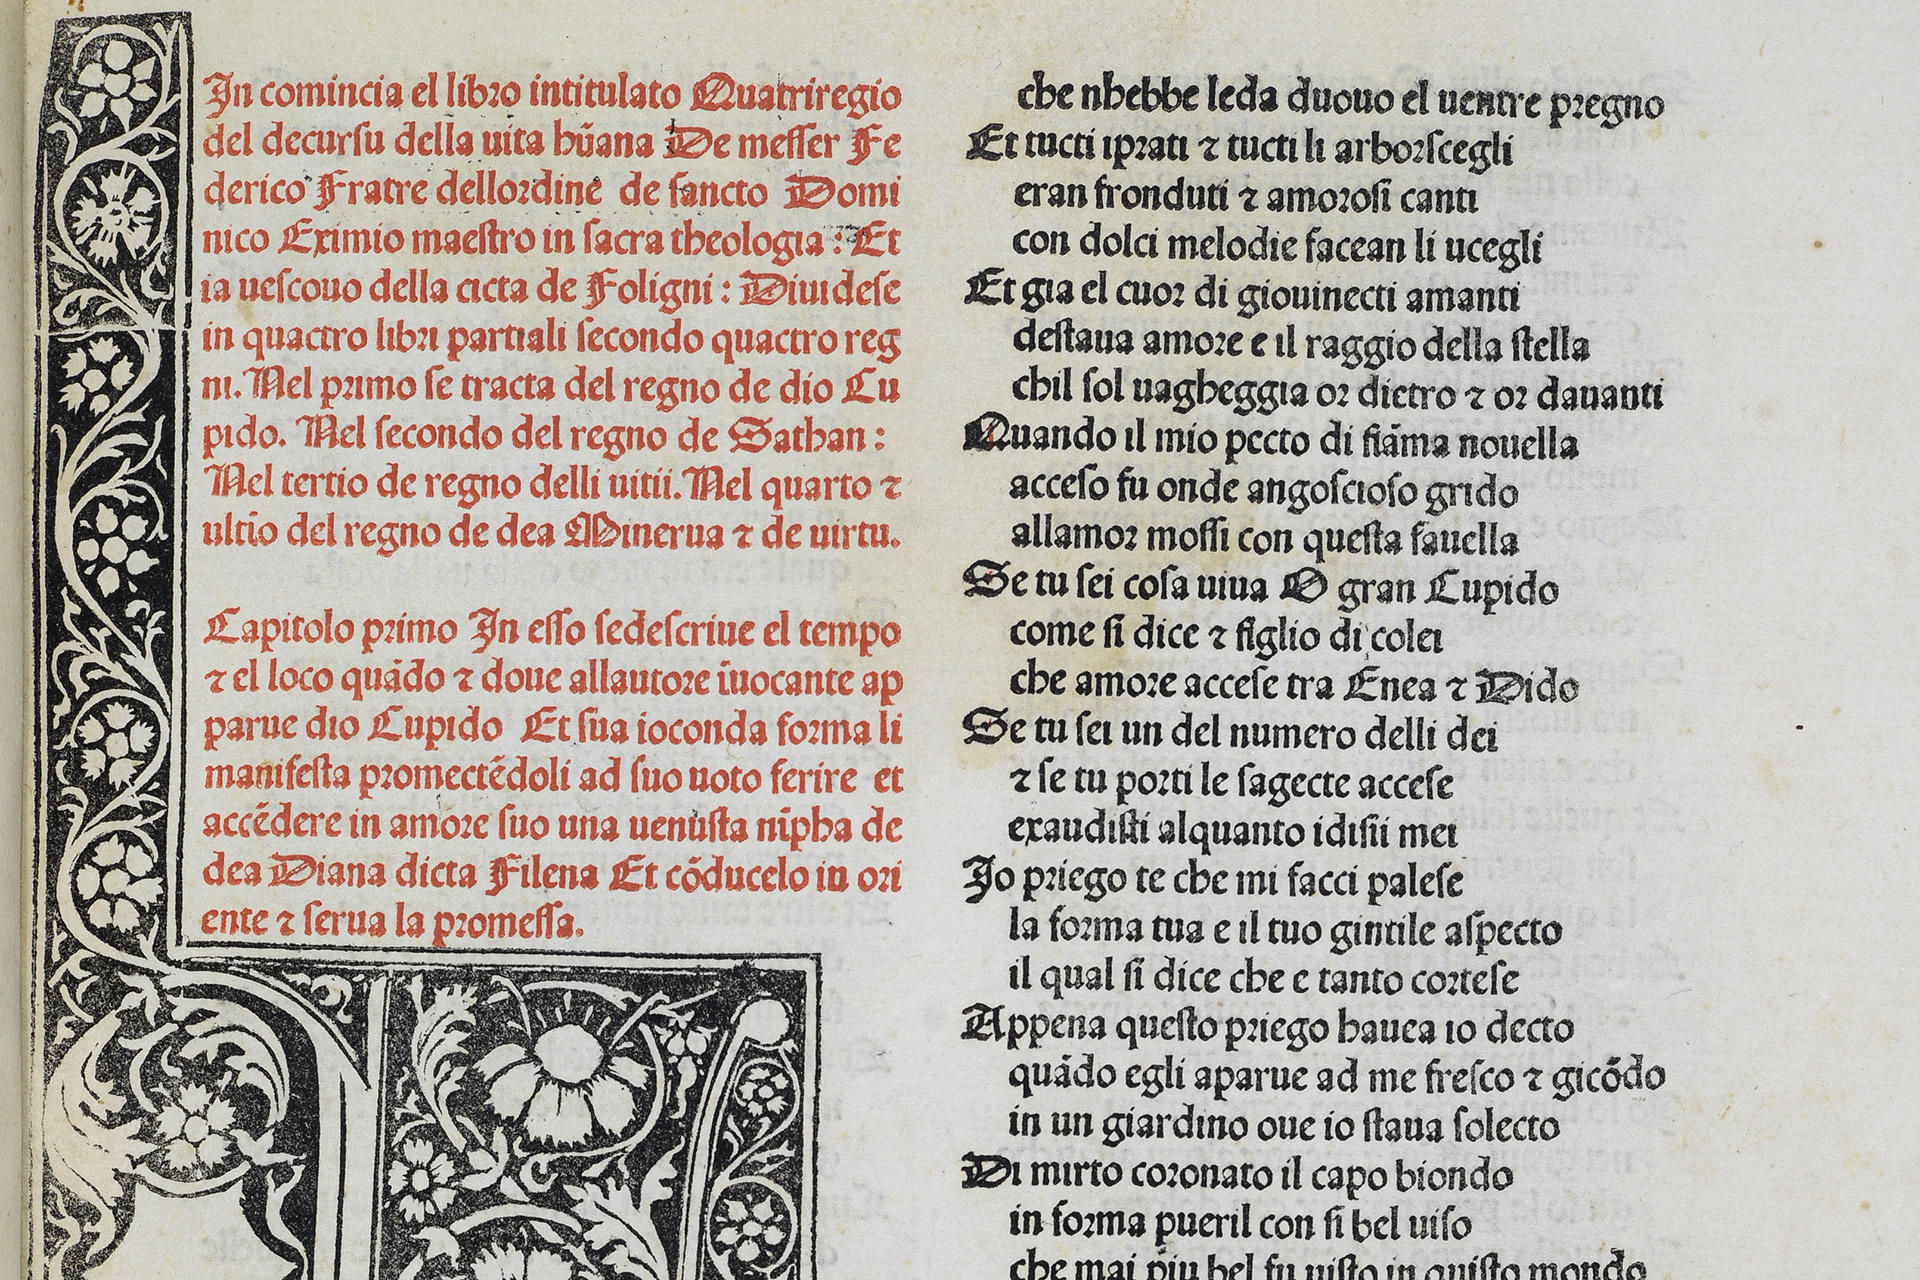 In comincia el libro intitulato Quatriregio
del decursu della uita hūana De messer Fe
derico Fratre dellordine de sancto Domi
nico Eximio maestro in sacra theologia : Et
ia uescouo della cicta de Foligni : Diuidese
in quactro libri partiali secondo quactro reg
ni. Nel primo se tracta del regno de dio Cu
pido. Nel secondo del regno de Sathan :
Nel tertio de regno delli uitii. Nel quarto ⁊
ultīo del regno de dea Minerua ⁊ de uirtu.
Capitolo primo In esso sedescriue el tempo
⁊ el loco quādo ⁊ doue allautore īuocante ap
parue dio Cupido Et sua ioconda forma li
manifesta promectēdoli ad suo uoto ferire et
accēdere in amore suo una uenusta nīpha de
dea Diana dicta Filena Et cōducelo in ori
ente ⁊ serua la promessa.
che nhebbe leda duouo el uentre pregno
Et tucti iprati ⁊ tucti li arborscegli
eran fronduti ⁊ amorosi canti
con dolci melodie facean li ucegli
Et gia el cuor di giouinecti amanti
destaua amore e il raggio della stella
chil sol uagheggia or dietro ⁊ or dauanti
Quando il mio pecto di fiāma nouella
acceso fu onde angoscioso grido
allamor mossi con questa fauella
Se tu sei cosa uiua O gran Cupido
come si dice ⁊ figlio di colei
che amore accese tra Enea ⁊ Dido
Se tu sei un del numero delli dei
⁊ se tu porti le sagecte accese
exaudisti alquanto idisii mei
Io priego te che mi facci palese
la forma tua e il tuo gintile aspecto
il qual si dice che e tanto cortese
Appena questo priego hauea io decto
quādo egli aparue ad me fresco ⁊ gicōdo
in un giardino oue io staua solecto
Di mirto coronato il capo biondo
in forma pueril con si bel uiso
che mai piu bel fu uisto in quisto mondo